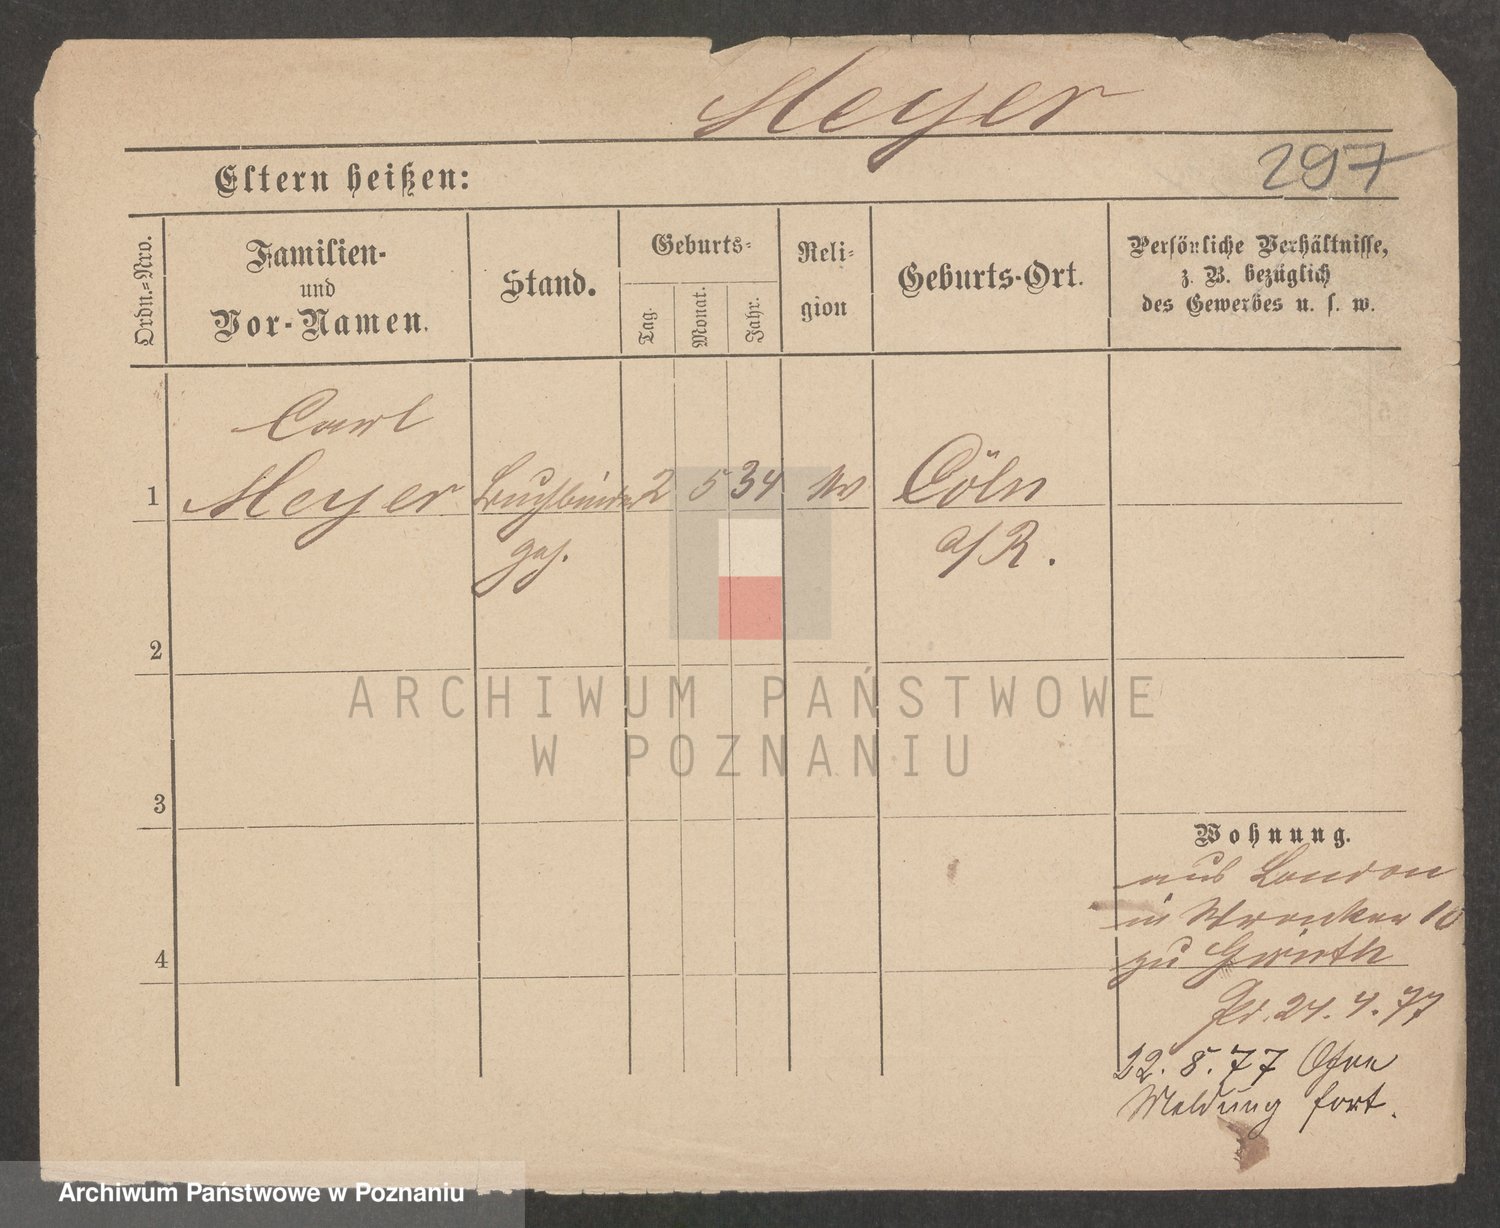 Meyer
297
Eltern heißen:
Ordn.-Nro.
Familien-
und
Vor-Namen.
Stand.
Geburts-
Tag.
Monat.
Jahr.
Reli-
gion
Geburts-Ort.
Persönliche Verhältnisse,
z. B. bezüglich
des Gewerbes u. s. w.
Carl
1 Meyer Buchbinder 2 5 34 Cöln
a/R.
2
ARCHIWUM PAŃSTWOWE
W POZNANIU
3
Wohnung.
aus London
in Wronker 10
zu
4
24. 4. 77
22. 8. 77 Ohne
Meldung fort.
Archiwum Państwowe w Poznaniu